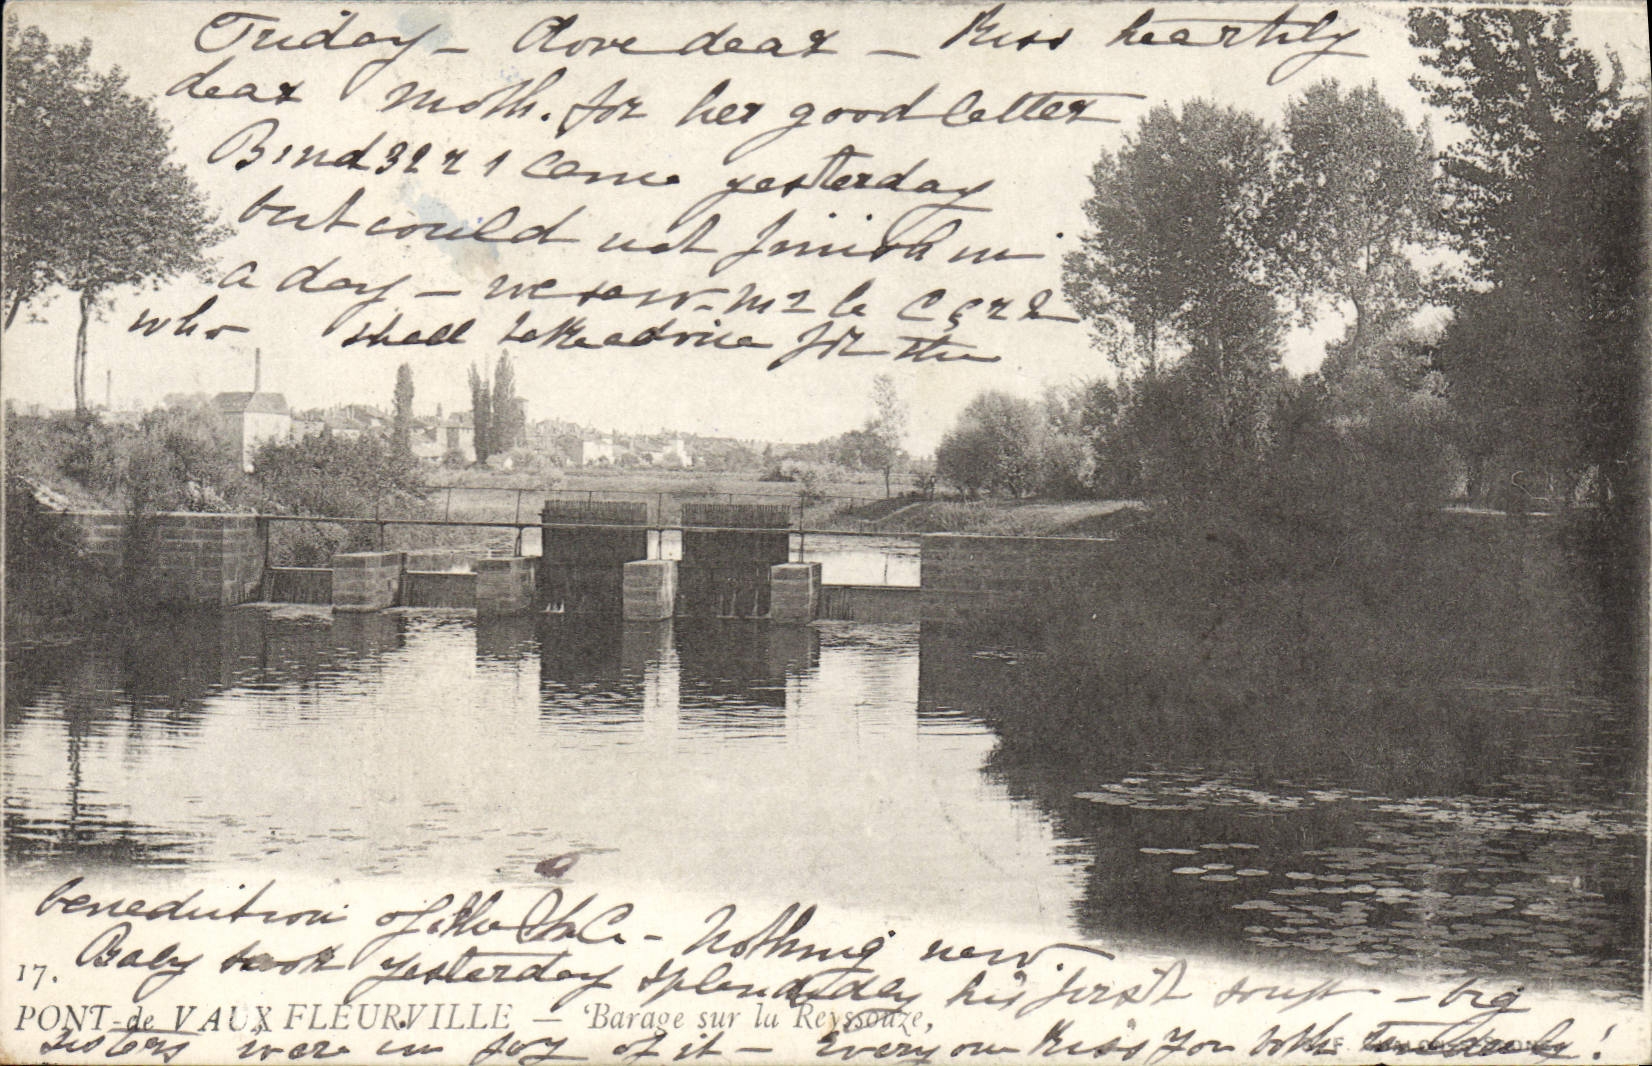 Friday – Love dear – Kiss heartily
dear Moth. for her good letter
came yesterday
but could not finish in
a day – we saw Mr le Curé
who shall take advice for the
benediction of the – Nothing new
Baby took yesterday splendidly his first soup – big
17.
PONT-de VAUX FLEURVILLE — Barage sur la Reyssouze,
sisters were in joy of it – Every one kiss you both tenderly!